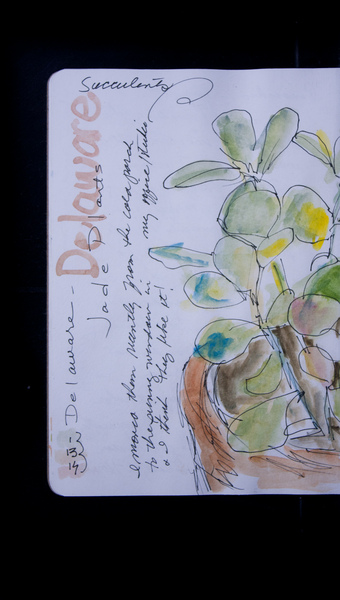 Succulents
Delaware
Delaware -
Jade Plants
I moved them recently from the cold porch
to the sunny window in my office/studio
& I think they like it!